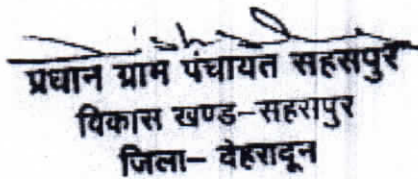 प्रधान ग्राम पंचायत सहसपुर
विकास खण्ड-सहसपुर
जिला- देहरादून